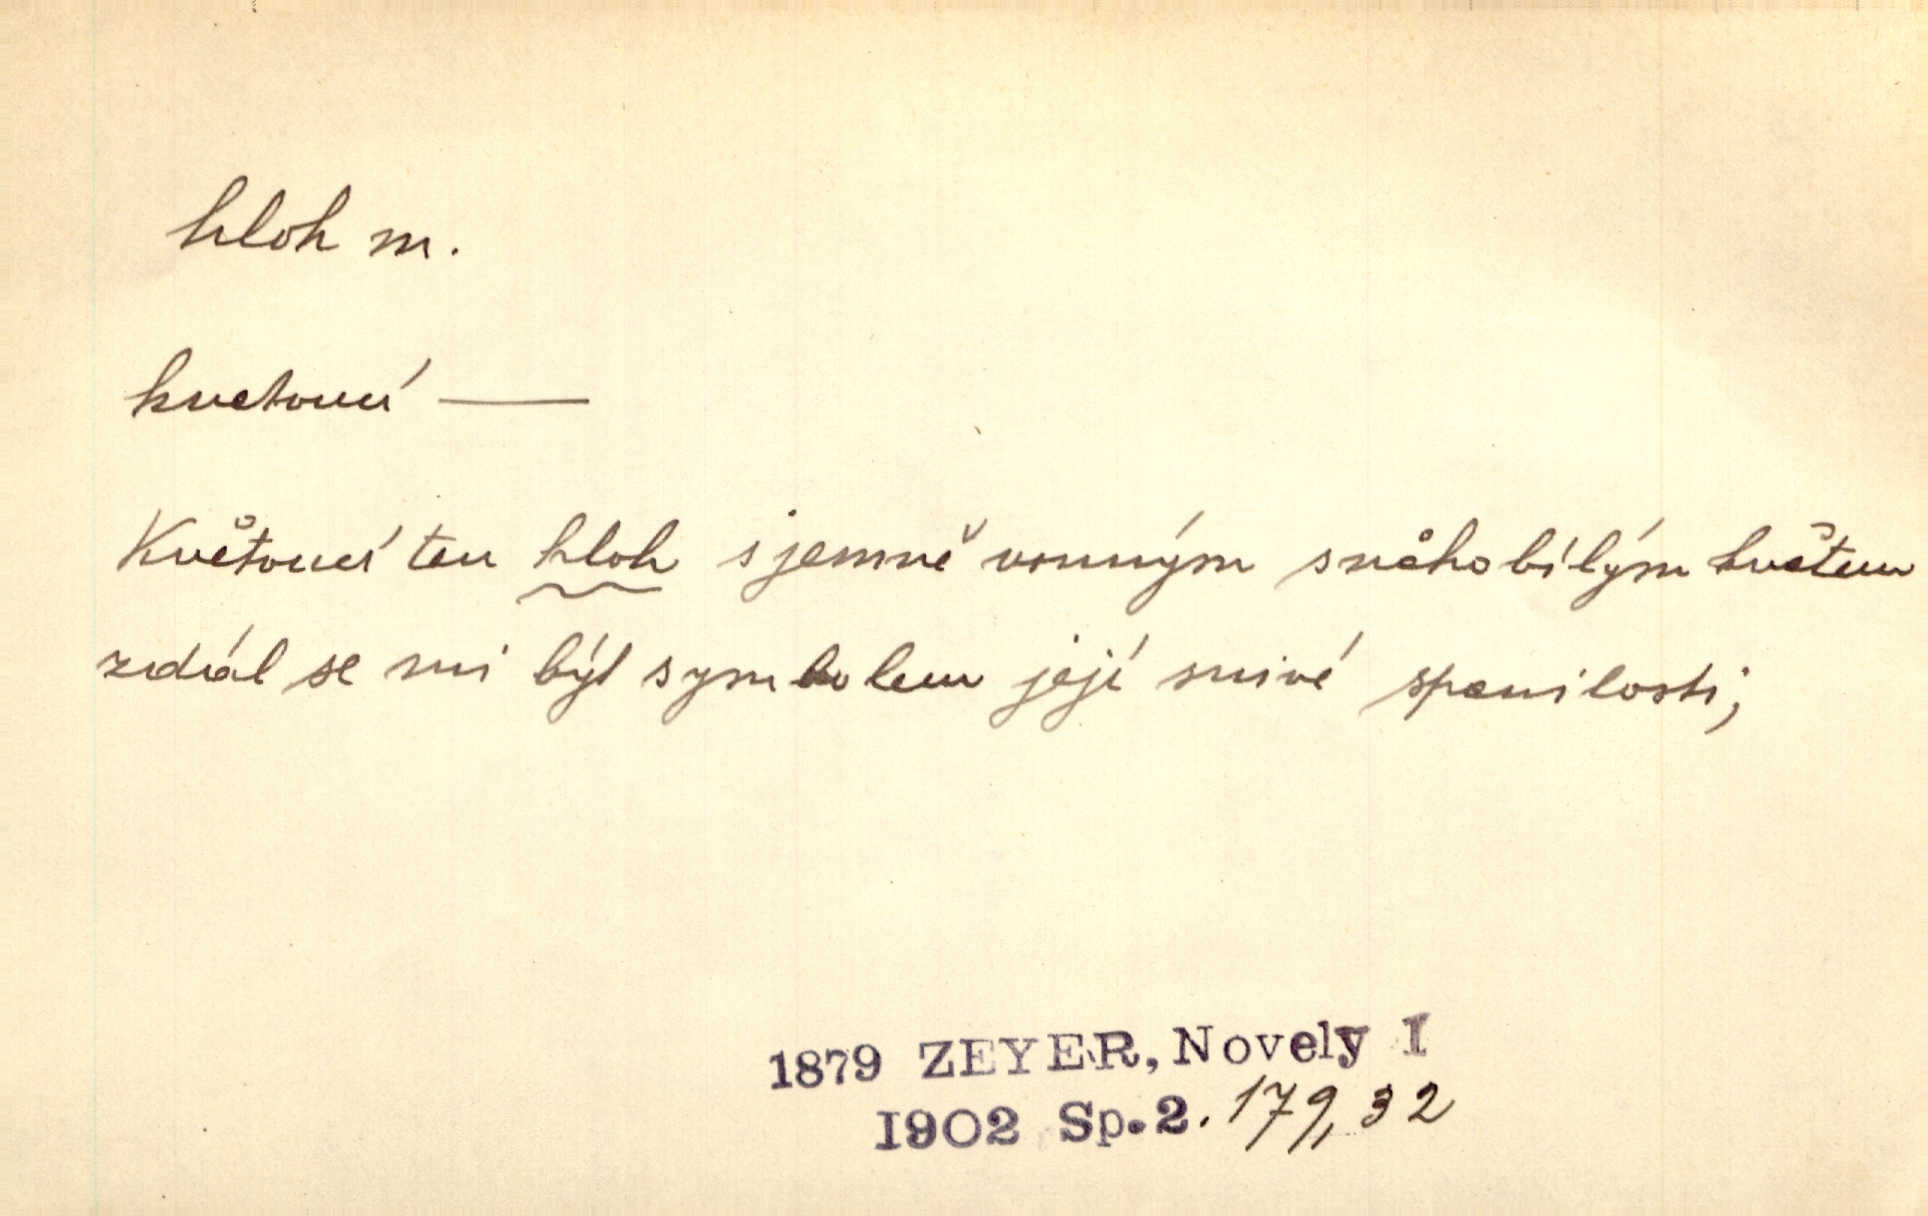 hloh m.
kvetoucí —
Květoucí ten hloh s jemně vonným sněhobílým květem
zdál se mi být symbolem její snivé spanilosti;
1879 ZEYER, Novely I
1902 Sp. 2. 179, 32